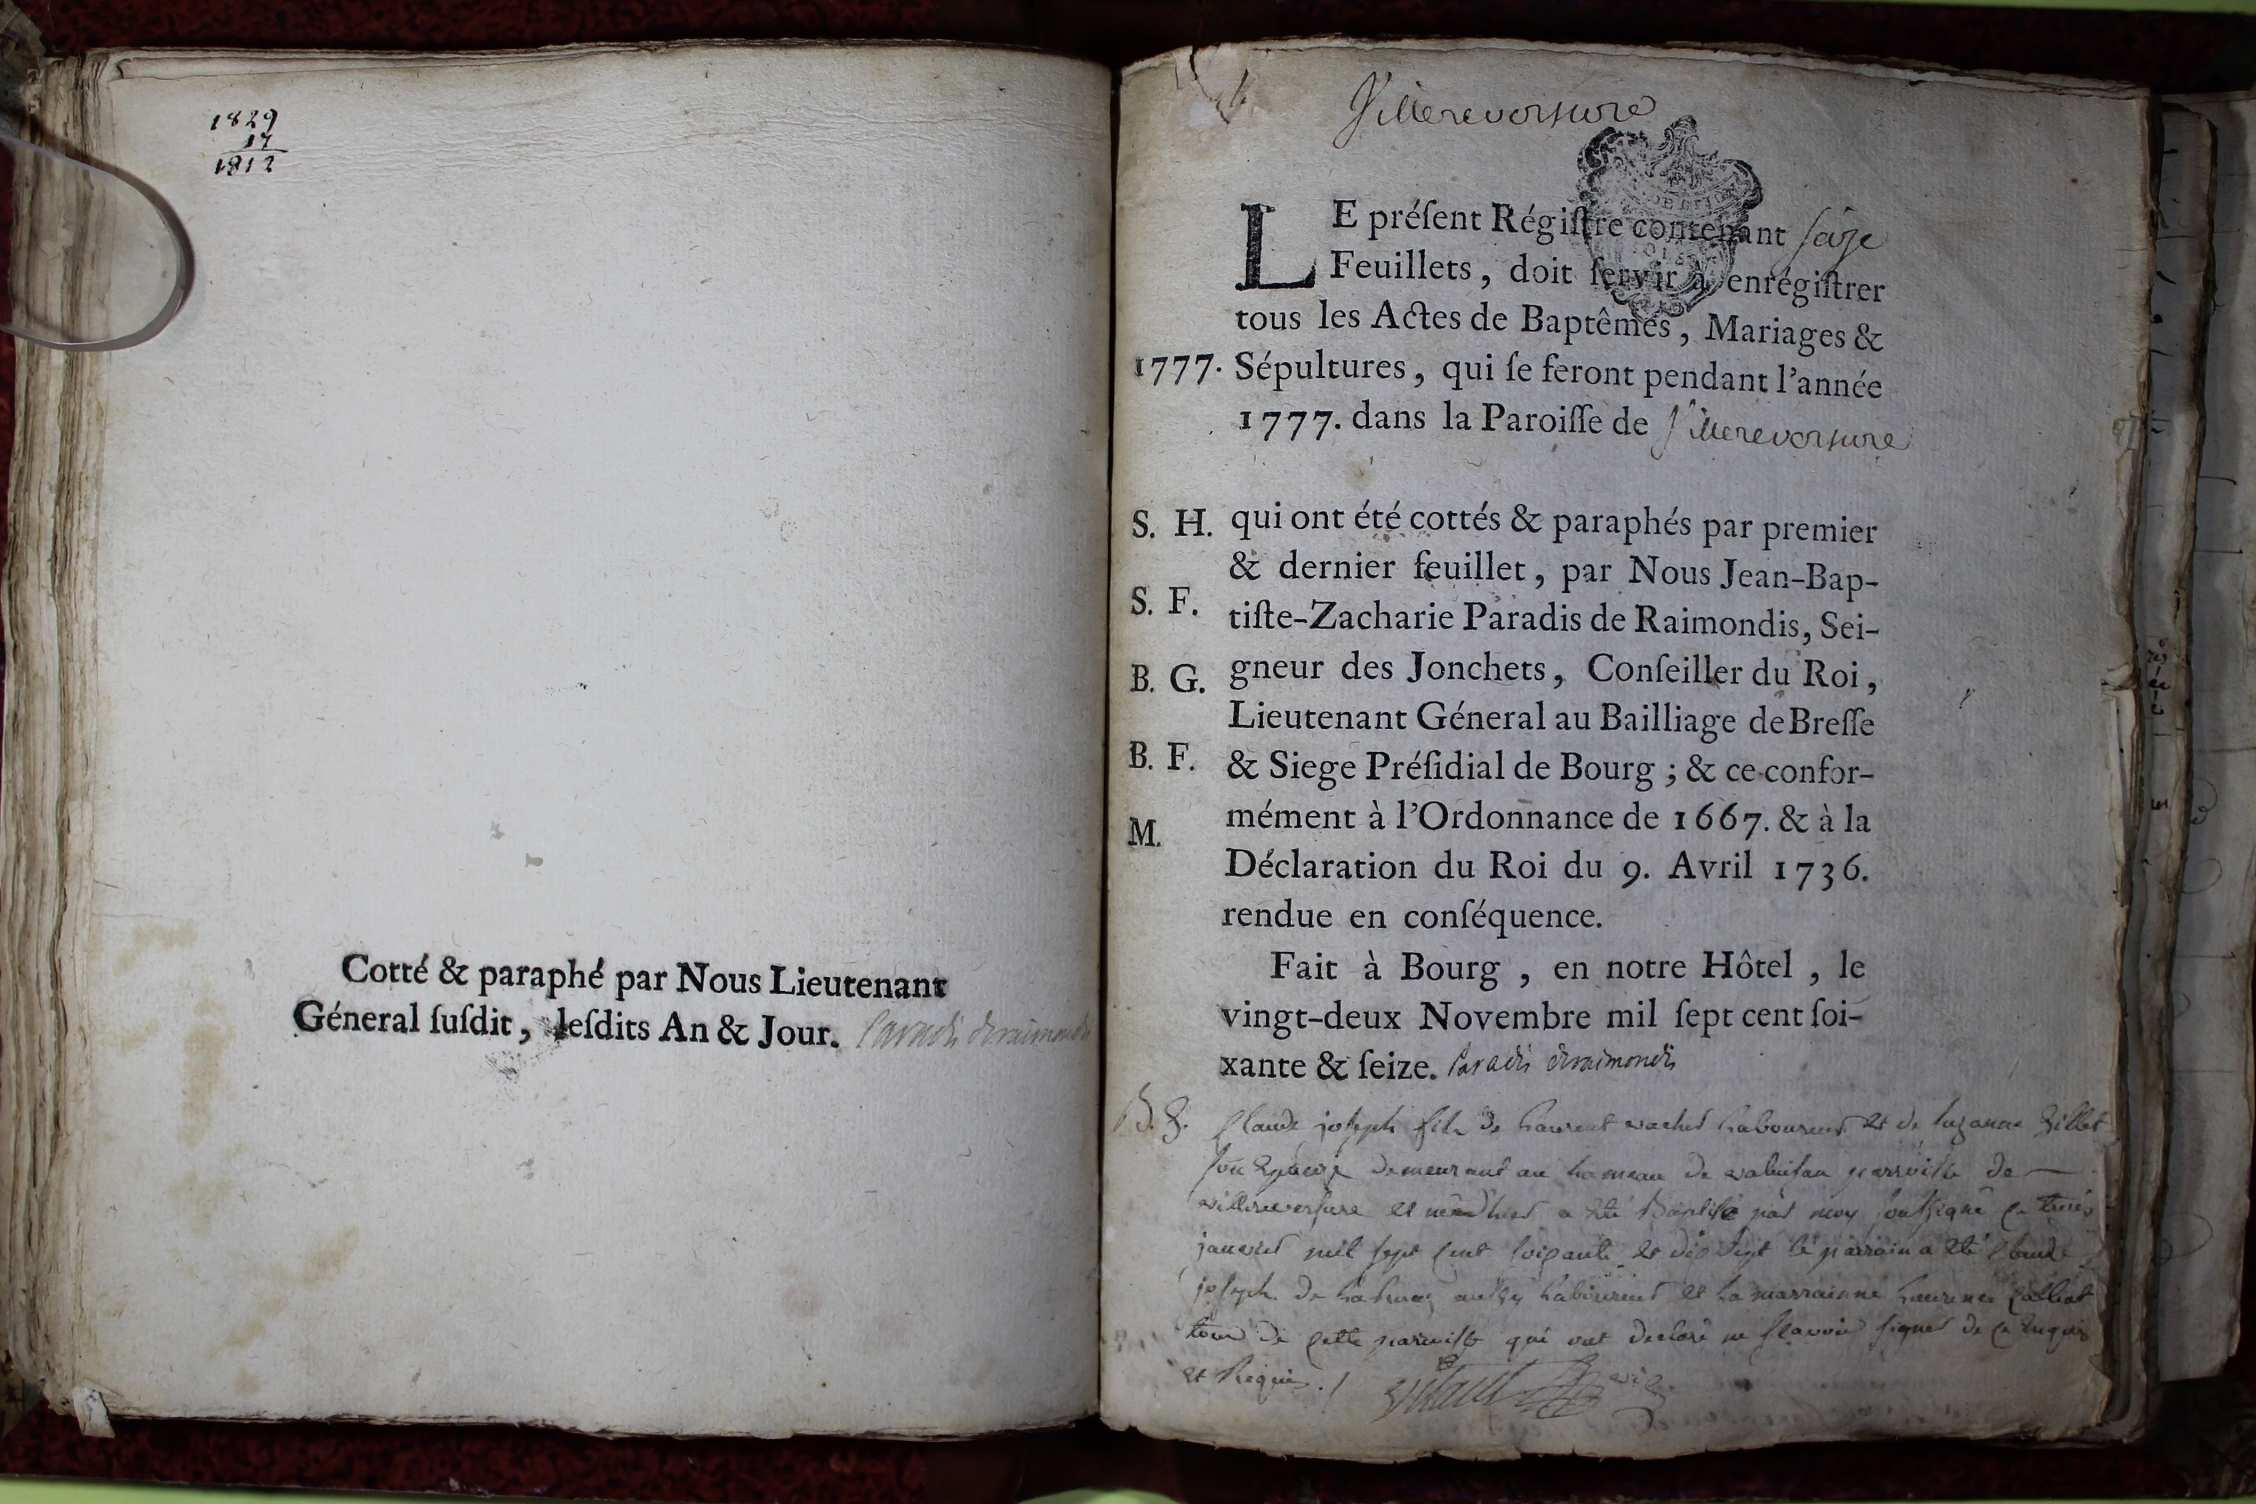 1829
17
1812
Cotté & paraphé par Nous Lieutenant
Géneral ſuſdit, leſdits An & Jour. Paradis deraimondis
Villereversure
LE préſent Régiſtre contenant ſeize
Feuillets, doit ſervir à enrégiſtrer
tous les Actes de Baptêmes, Mariages &
1777. Sépultures, qui ſe feront pendant l'année
1777. dans la Paroiſſe de Villereversure
S. H. qui ont été cottés & paraphés par premier
& dernier feuillet, par Nous Jean-Bap-
S. F. tiſte-Zacharie Paradis de Raimondis, Sei-
B. G. gneur des Jonchets, Conſeiller du Roi,
Lieutenant Géneral au Bailliage de Breſſe
B. F. & Siege Préſidial de Bourg ; & ce confor-
M. mément à l'Ordonnance de 1667. & à la
Déclaration du Roi du 9. Avril 1736.
rendue en conſéquence.
Fait à Bourg, en notre Hôtel, le
vingt-deux Novembre mil ſept cent ſoi-
xante & ſeize. Paradis deraimondis
B. g. Claude joseph fils de Laurent vachet Laboureur et de suzanne Gillet
son epouse demeurant au hameau de parroisse de
villereversure et né d'hier a été Baptisé par moy soussigné ce trois
janvier mil sept cent soixante et dix sept le parrain a été Claude
joseph de aussy Laboureur et la marrainne Laurence
tous de cette parroisse qui ont declaré ne sçavoir signer de ce enquis
et Requis ./ vic.